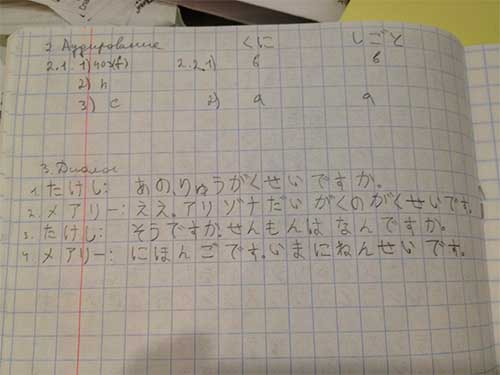 2 Аудирование くに しごと
2.1. 1) 403(f) 2.2. 1) b b
2) h
3) c 2) a a
3. Диалог
1. たけし: あの、りゅうがくせいですか。
2. メアリー: ええ。アリゾナだいがくのがくせいです。
3. たけし: そうですか。せんもんは なんですか。
4 メアリー: にほんごです。いまにねんせいです。